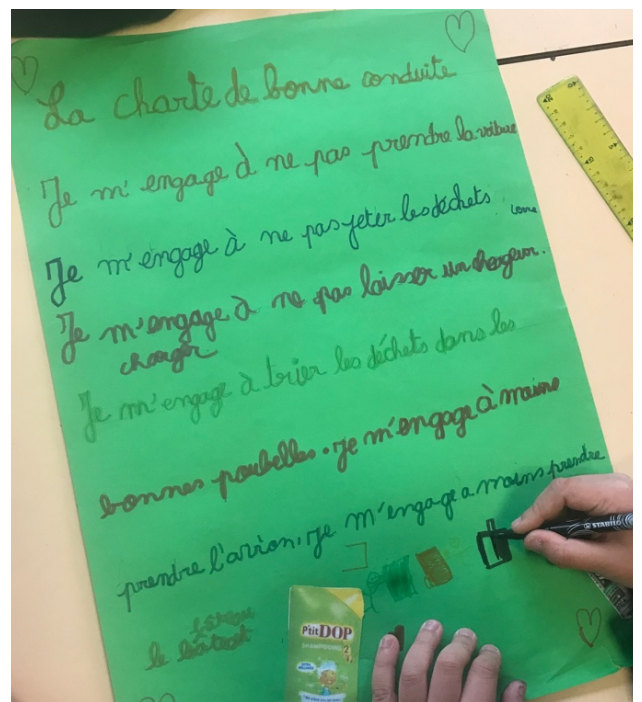 La charte de bonne conduite
Je m'engage à ne pas prendre la voiture
Je m'engage à ne pas jeter les déchets
Je m'engage à ne pas laisser un chargeur.
charger
Je m'engage à trier les déchets dans les
bonnes poubelles. je m'engage à moins
prendre l'avion, je m'engage a moins prendre
le
STABILO
P'tit DOP
SHAMPOOING
2